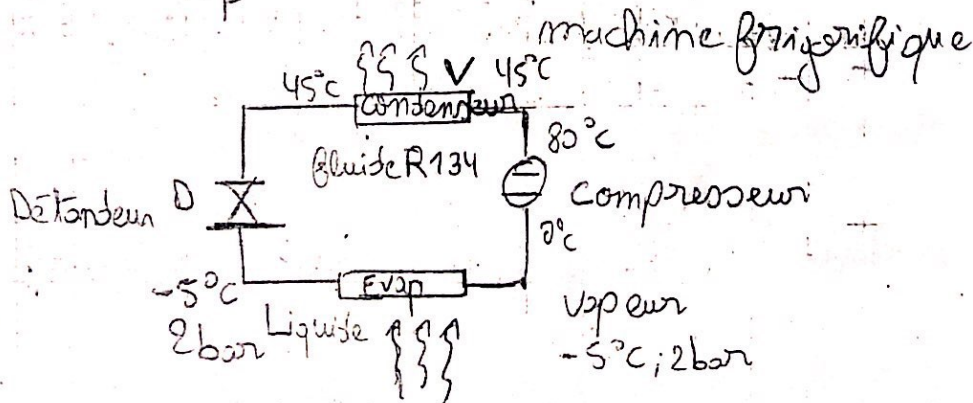 machine frigorifique
45°C V 45°C
condenseur
80°C
fluide R134
Détandeur D
compresseur
0°C
-5°C
Evap
2bar Liquide
vapeur
-5°C; 2bar